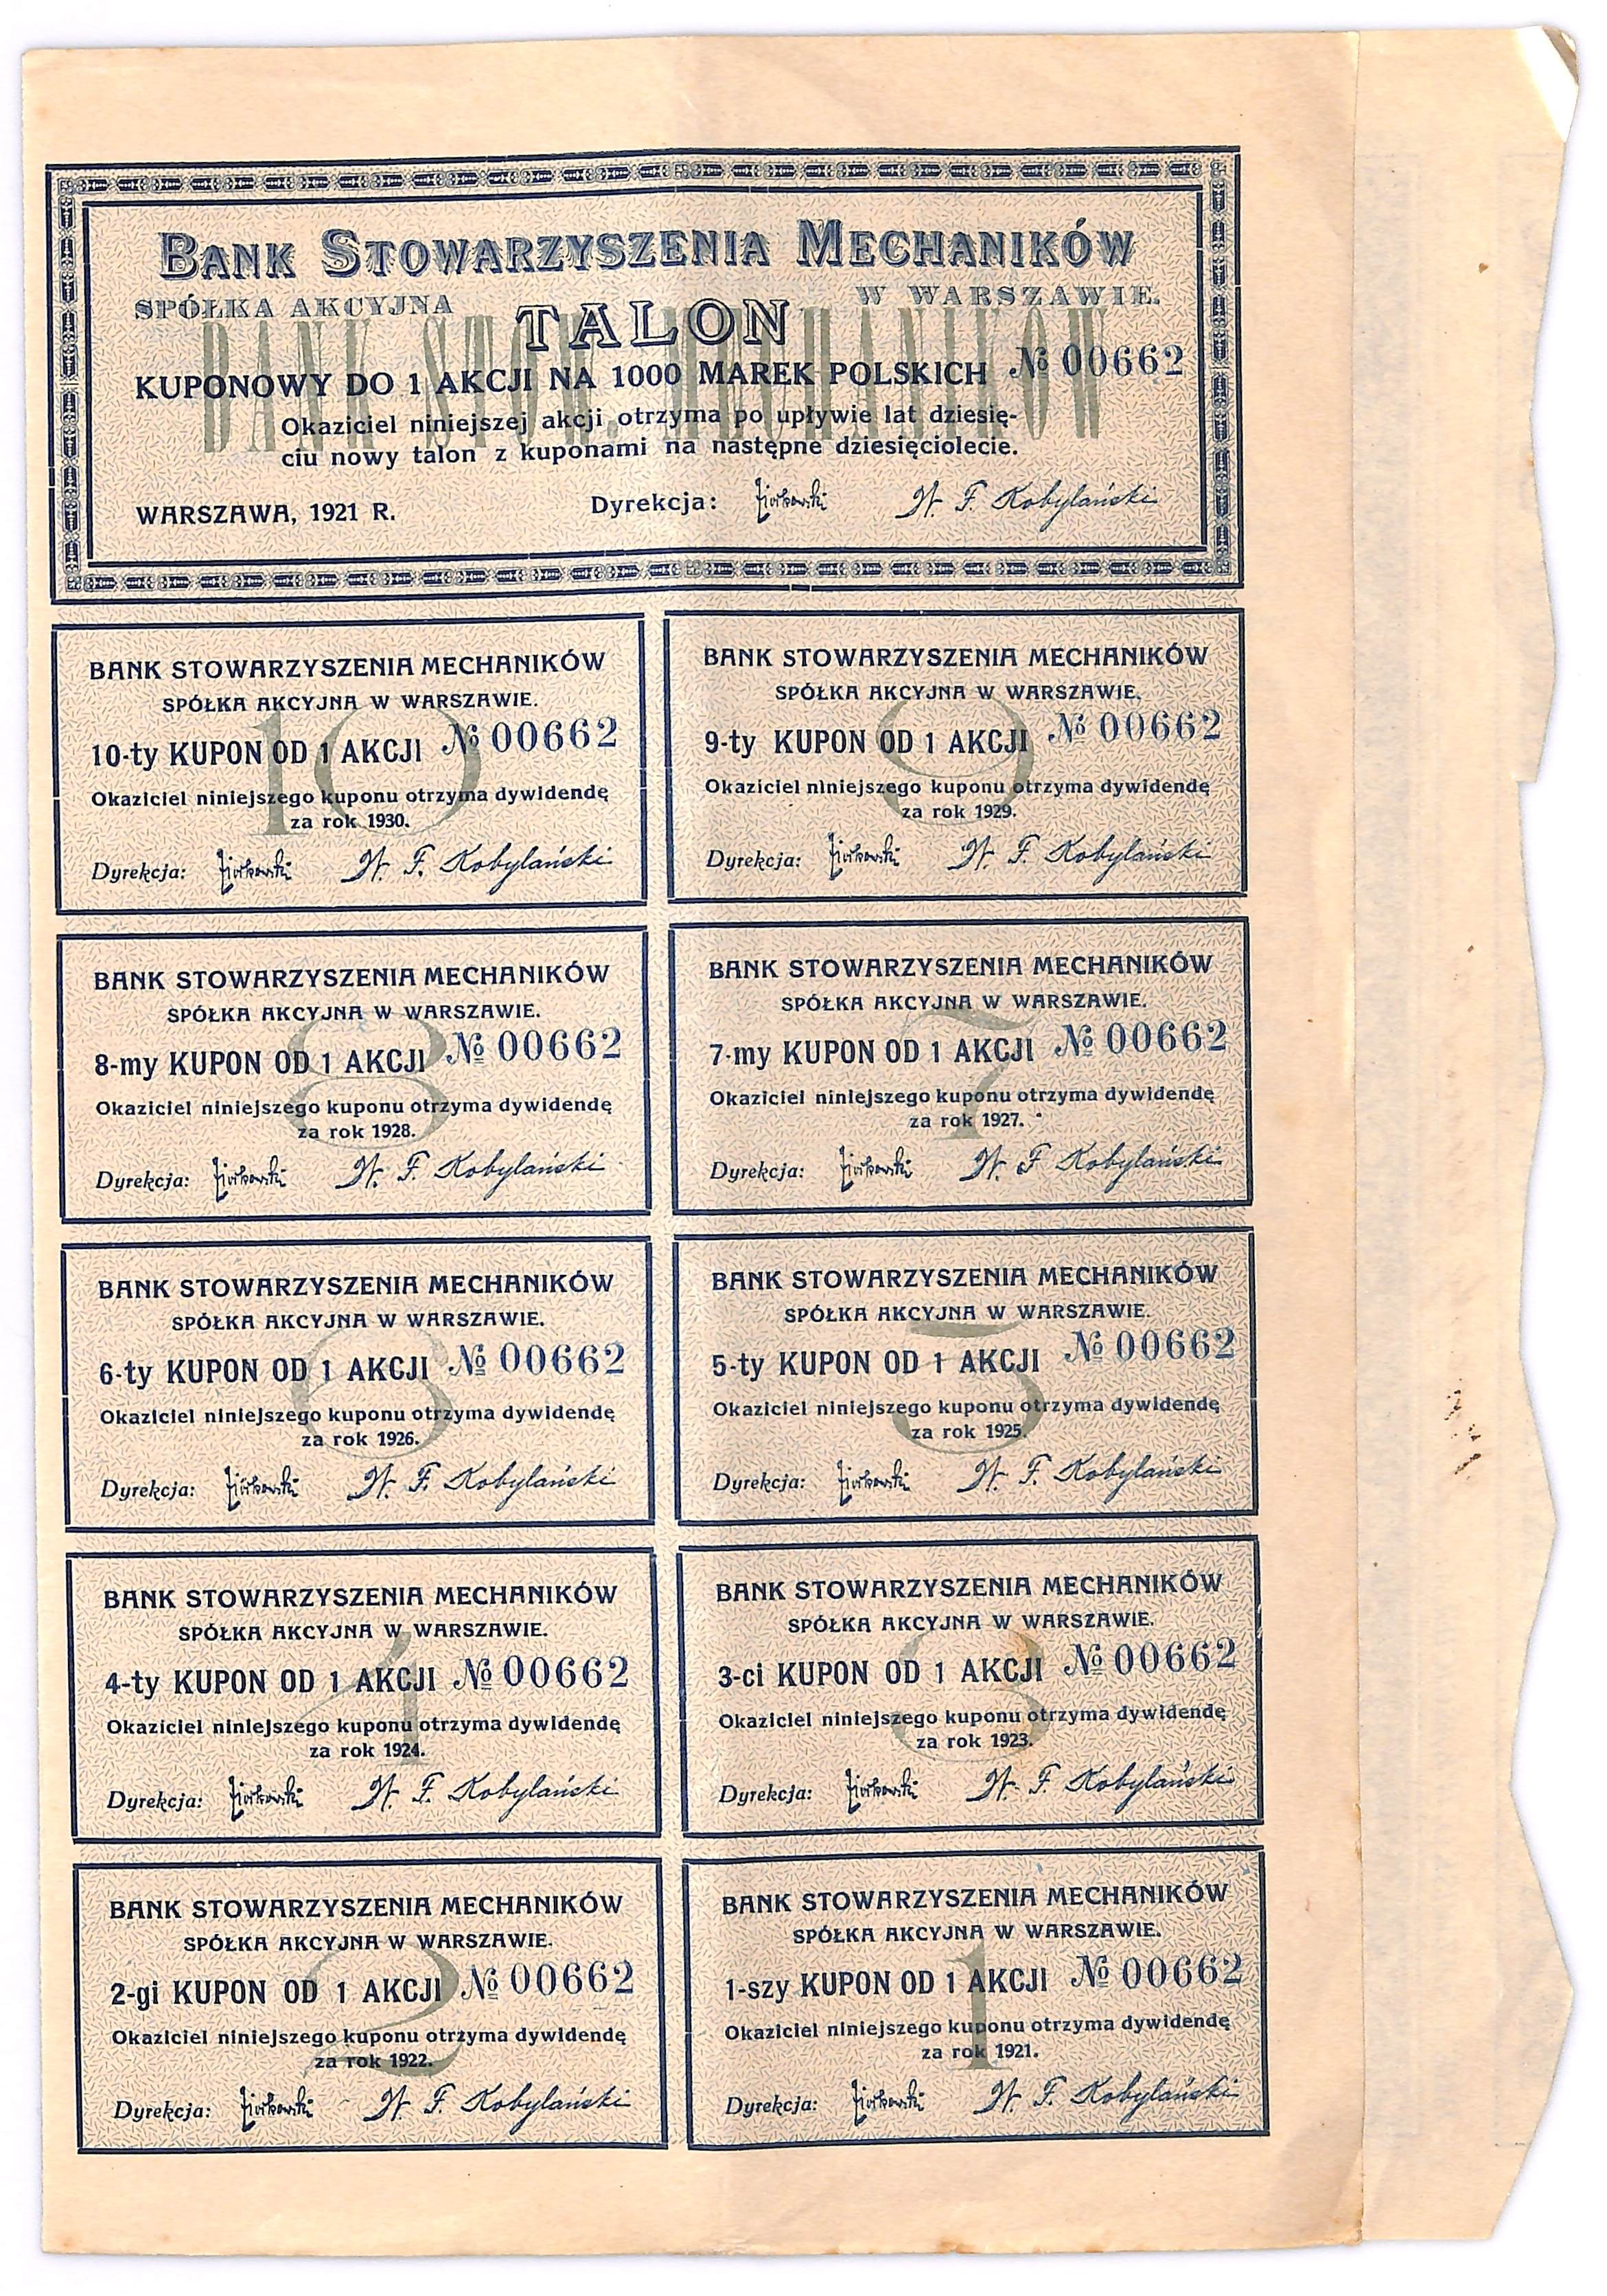 BANK STOWARZYSZENIA MECHANIKÓW
SPÓŁKA AKCYJNA W WARSZAWIE.
TALON
BANK STOW. MECHANIKÓW
KUPONOWY DO 1 AKCJI NA 1000 MAREK POLSKICH № 00662
Okaziciel niniejszej akcji otrzyma po upływie lat dziesię-
ciu nowy talon z kuponami na następne dziesięciolecie.
WARSZAWA, 1921 R. Dyrekcja: Ziółkowski W. F. Kobylański
BANK STOWARZYSZENIA MECHANIKÓW
SPÓŁKA AKCYJNA W WARSZAWIE.
10
10-ty KUPON OD 1 AKCJI № 00662
Okaziciel niniejszego kuponu otrzyma dywidendę
za rok 1930.
Dyrekcja: W. F. Kobylański
BANK STOWARZYSZENIA MECHANIKÓW
SPÓŁKA AKCYJNA W WARSZAWIE.
9
9-ty KUPON OD 1 AKCJI № 00662
Okaziciel niniejszego kuponu otrzyma dywidendę
za rok 1929.
Dyrekcja: W. F. Kobylański
BANK STOWARZYSZENIA MECHANIKÓW
SPÓŁKA AKCYJNA W WARSZAWIE.
8
8-my KUPON OD 1 AKCJI № 00662
Okaziciel niniejszego kuponu otrzyma dywidendę
za rok 1928.
Dyrekcja: W. F. Kobylański
BANK STOWARZYSZENIA MECHANIKÓW
SPÓŁKA AKCYJNA W WARSZAWIE.
7
7-my KUPON OD 1 AKCJI № 00662
Okaziciel niniejszego kuponu otrzyma dywidendę
za rok 1927.
Dyrekcja: W. F. Kobylański
BANK STOWARZYSZENIA MECHANIKÓW
SPÓŁKA AKCYJNA W WARSZAWIE.
6
6-ty KUPON OD 1 AKCJI № 00662
Okaziciel niniejszego kuponu otrzyma dywidendę
za rok 1926.
Dyrekcja: W. F. Kobylański
BANK STOWARZYSZENIA MECHANIKÓW
SPÓŁKA AKCYJNA W WARSZAWIE.
5
5-ty KUPON OD 1 AKCJI № 00662
Okaziciel niniejszego kuponu otrzyma dywidendę
za rok 1925.
Dyrekcja: W. F. Kobylański
BANK STOWARZYSZENIA MECHANIKÓW
SPÓŁKA AKCYJNA W WARSZAWIE.
4
4-ty KUPON OD 1 AKCJI № 00662
Okaziciel niniejszego kuponu otrzyma dywidendę
za rok 1924.
Dyrekcja: W. F. Kobylański
BANK STOWARZYSZENIA MECHANIKÓW
SPÓŁKA AKCYJNA W WARSZAWIE.
3
3-ci KUPON OD 1 AKCJI № 00662
Okaziciel niniejszego kuponu otrzyma dywidendę
za rok 1923.
Dyrekcja: W. F. Kobylański
BANK STOWARZYSZENIA MECHANIKÓW
SPÓŁKA AKCYJNA W WARSZAWIE.
2
2-gi KUPON OD 1 AKCJI № 00662
Okaziciel niniejszego kuponu otrzyma dywidendę
za rok 1922.
Dyrekcja: W. F. Kobylański
BANK STOWARZYSZENIA MECHANIKÓW
SPÓŁKA AKCYJNA W WARSZAWIE.
1
1-szy KUPON OD 1 AKCJI № 00662
Okaziciel niniejszego kuponu otrzyma dywidendę
za rok 1921.
Dyrekcja: W. F. Kobylański